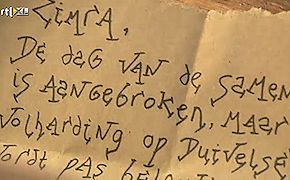 rtl XL
Zimra,
De dag van de samen
is aangebroken, maar
volharding op Duivelse
wordt pas